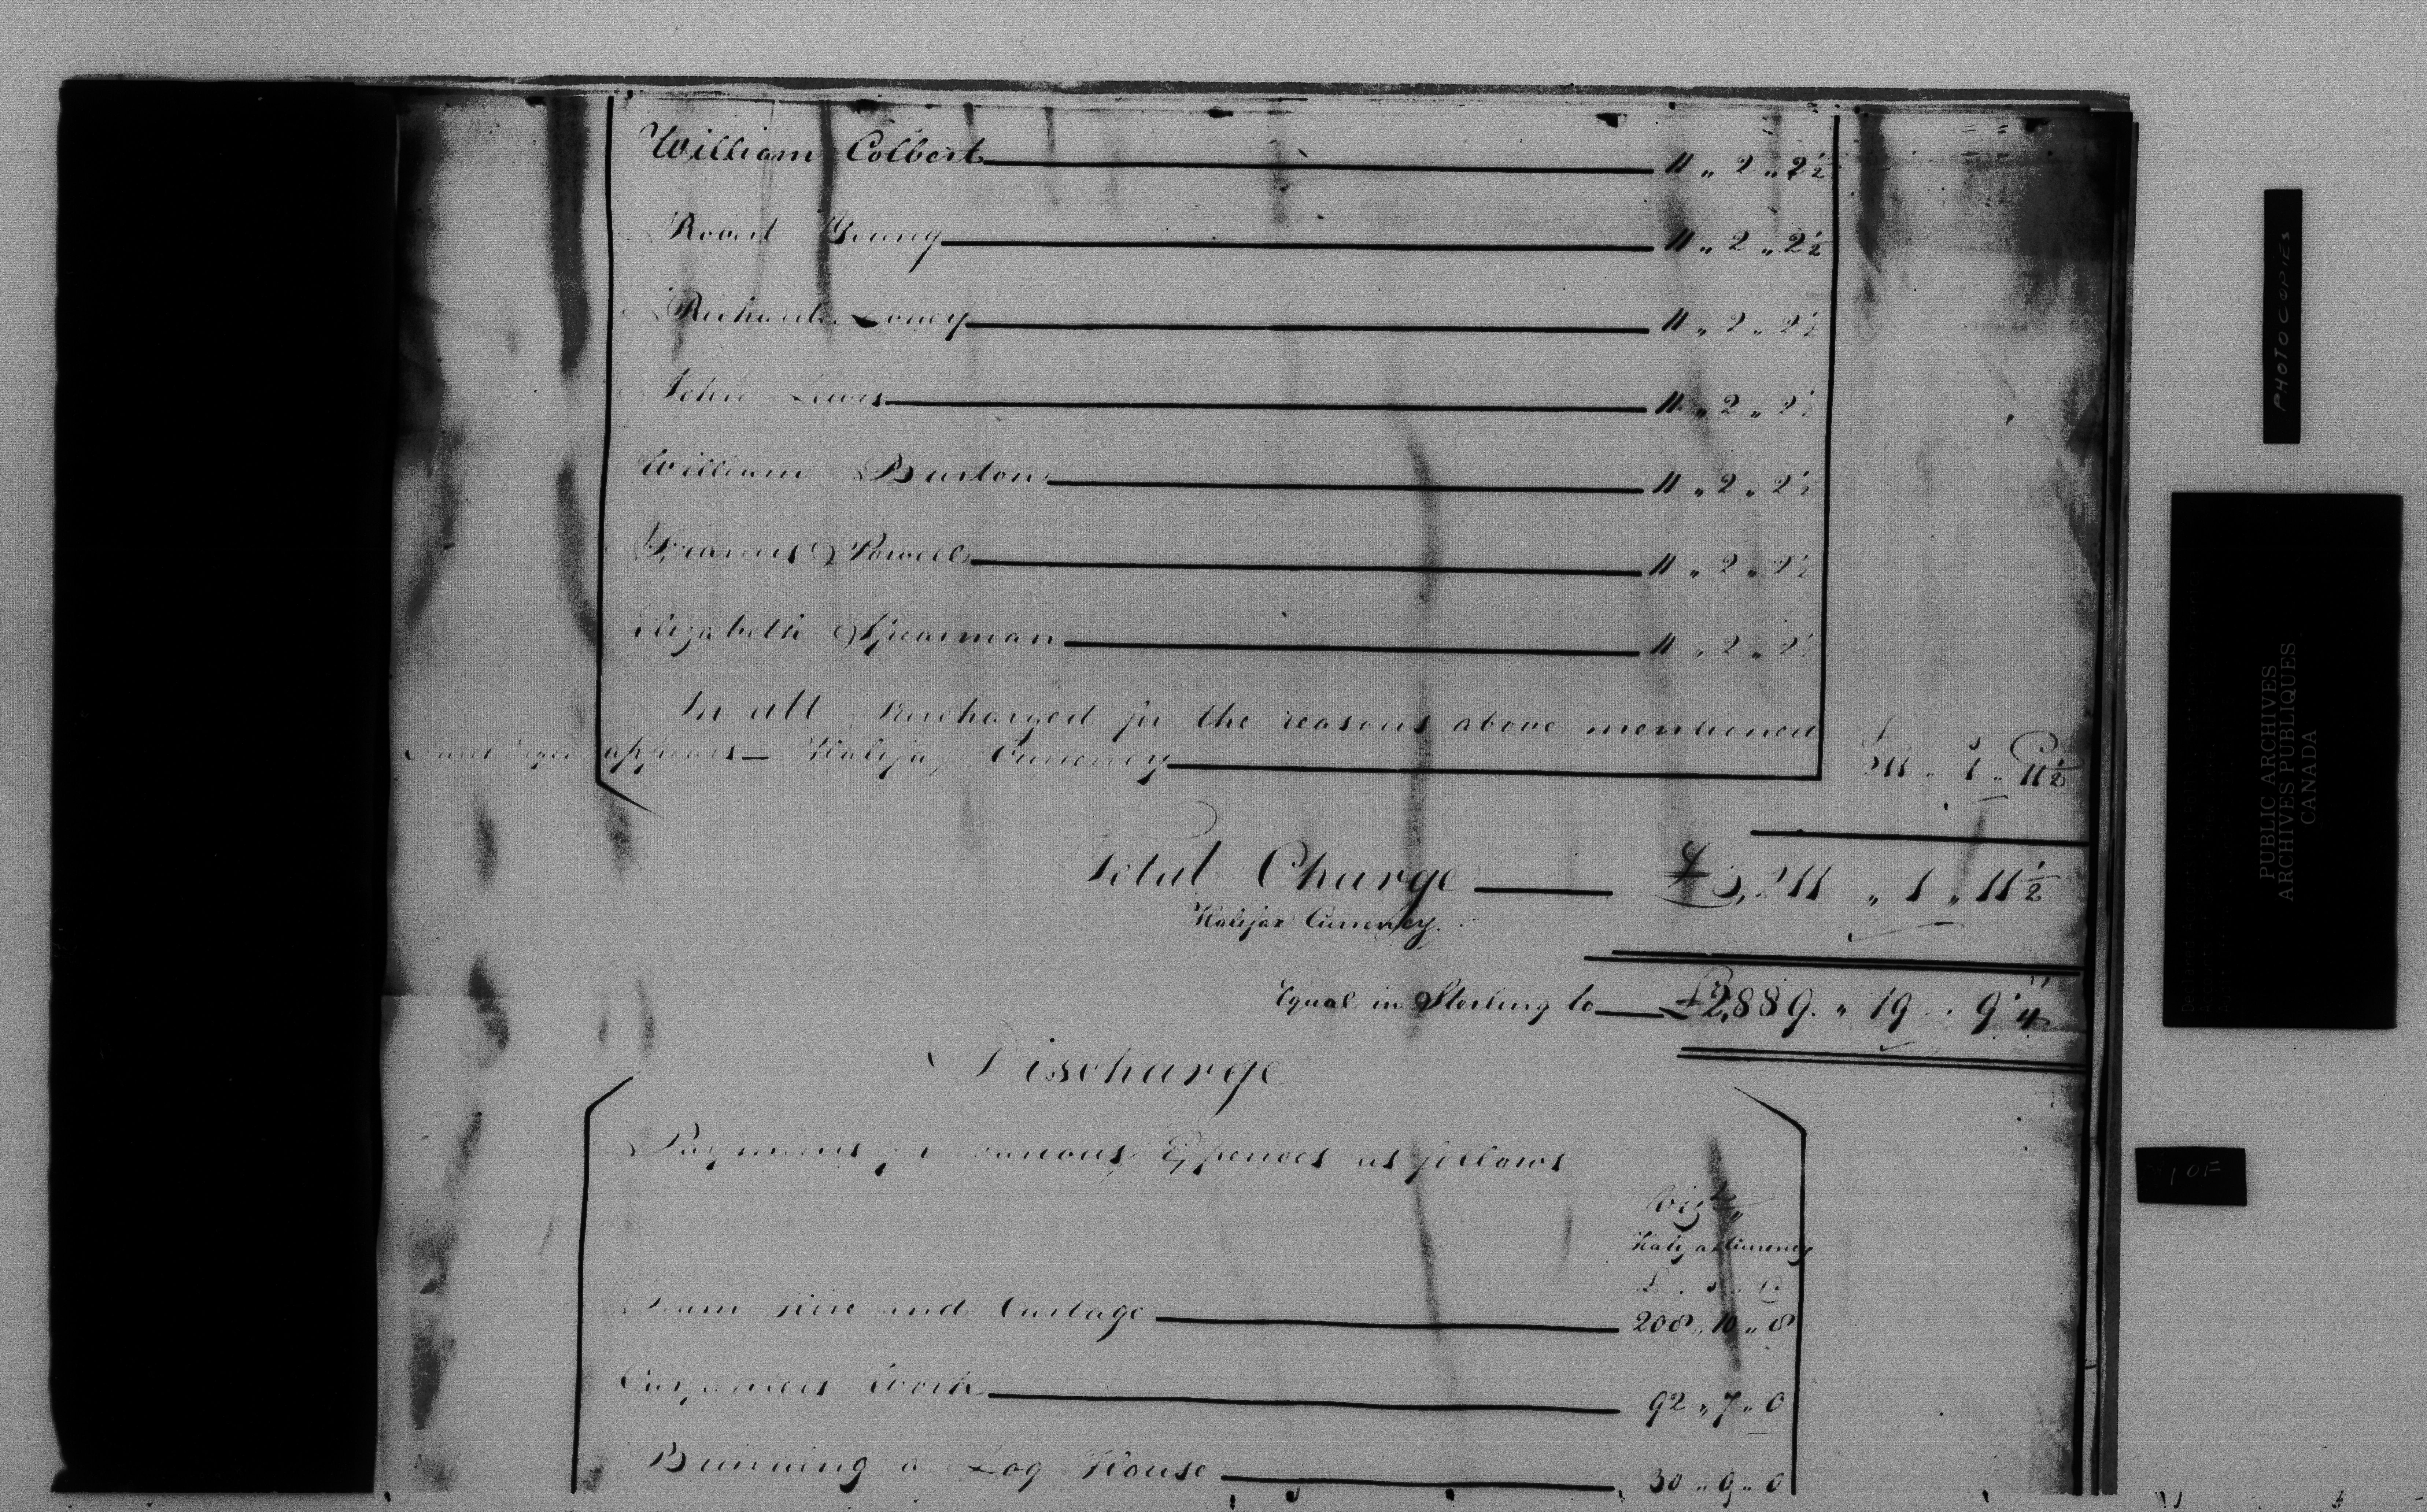 William Colbert 11 „ 2 „ 2½
Robert Young 11 „ 2 „ 2½
Richard Loney 11 „ 2 „ 2½
John Lewis 11 „ 2 „ 2½
William Burton 11 „ 2 „ 2½
Francis Powell 11 „ 2 „ 2½
Elizabeth Spearman 11 „ 2 „ 2½
In all Surcharged for the reasons above mentioned
Surcharged appears — Halifax Currency £ s D 211 „ 1 „ 11½
Total Charge £3,211 „ 1 „ 11½
Halifax Currency.
Equal in Sterling to £2,889 „ 19 „ 9¼
Discharge
Payments for various Expences as follows
Vizt,,
Halifax Currency
£ . s . D
Team Hire and Cartage 208 „ 10 „ 8
Carpenters Work 92 „ 7 „ 0
Building a Log House 30 „ 0 „ 0
PHOTOCOPIES
PUBLIC ARCHIVES
ARCHIVES PUBLIQUES
CANADA